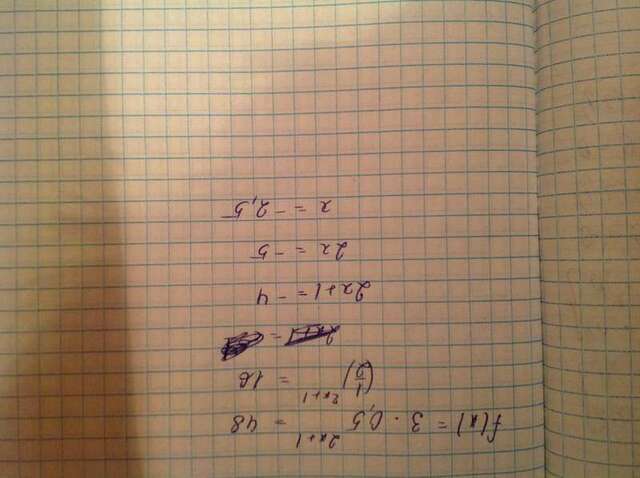 f(x) = 3 · 0,5^{2x+1} = 48
(1/2)^{2x+1} = 16
=
2x+1 = -4
2x = -5
x = -2,5